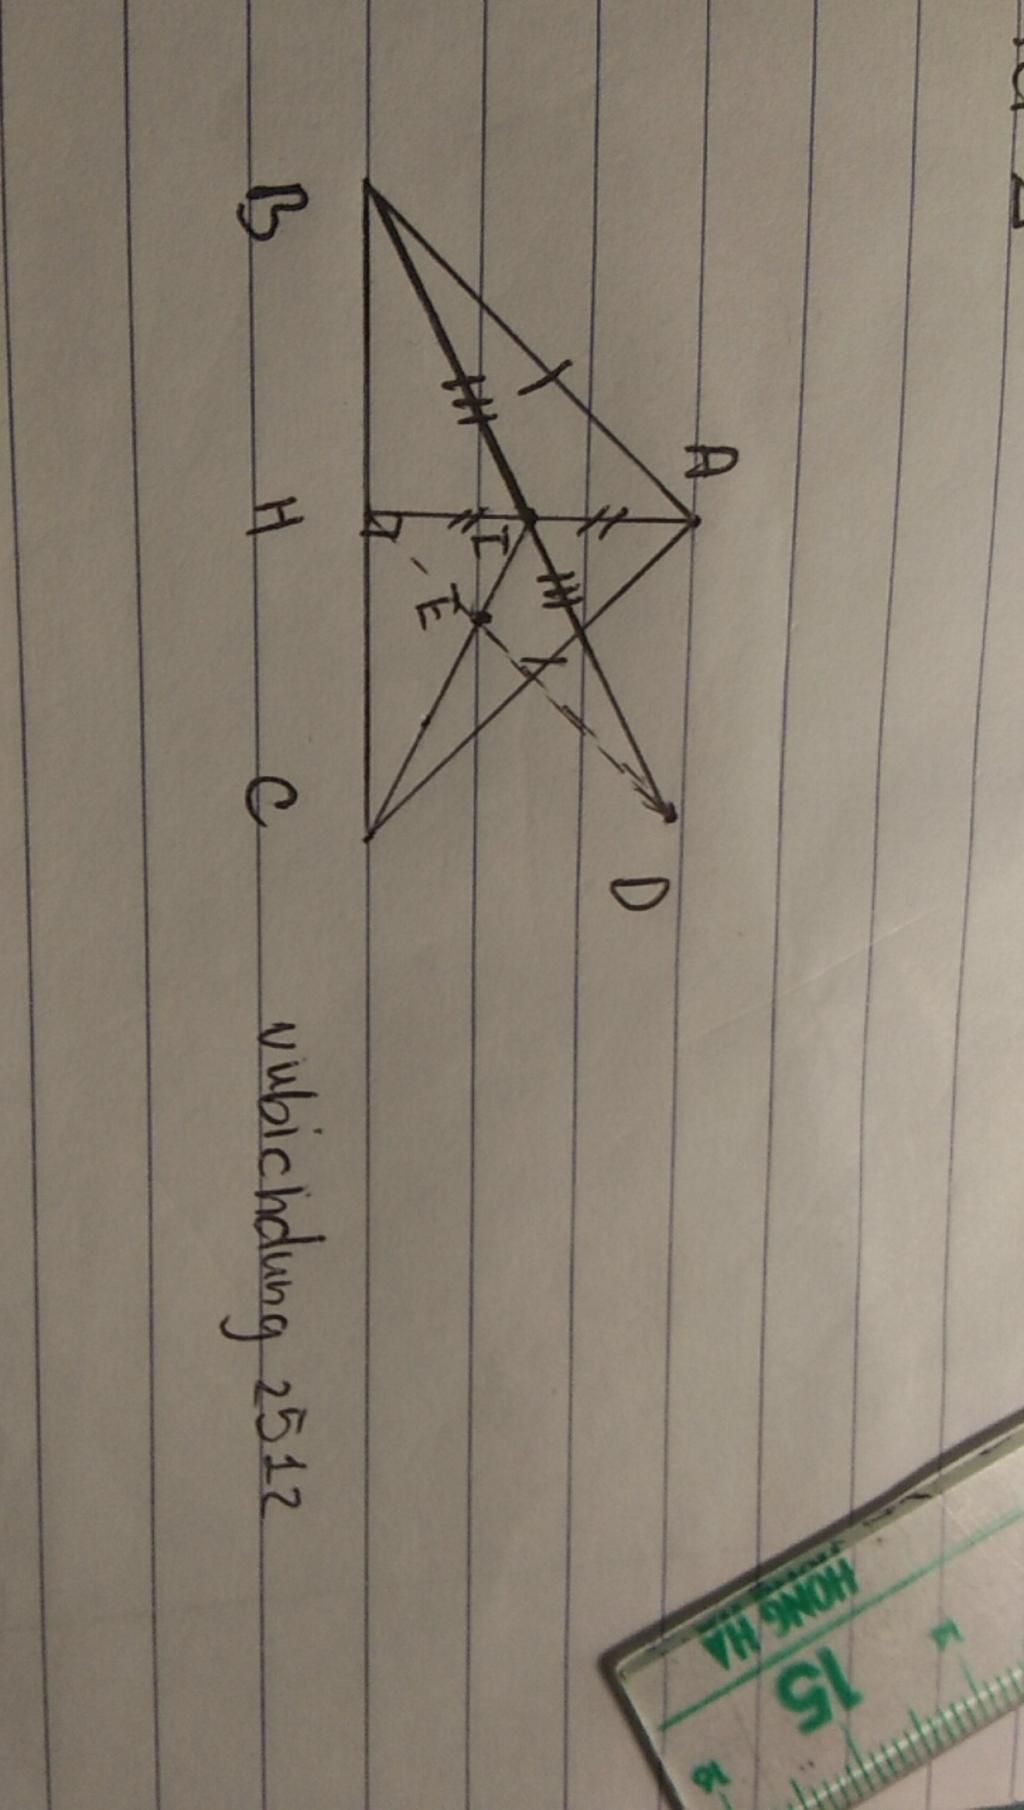 A
D
I
E
B
H
C
vubichdung 2512
HONG HA
15